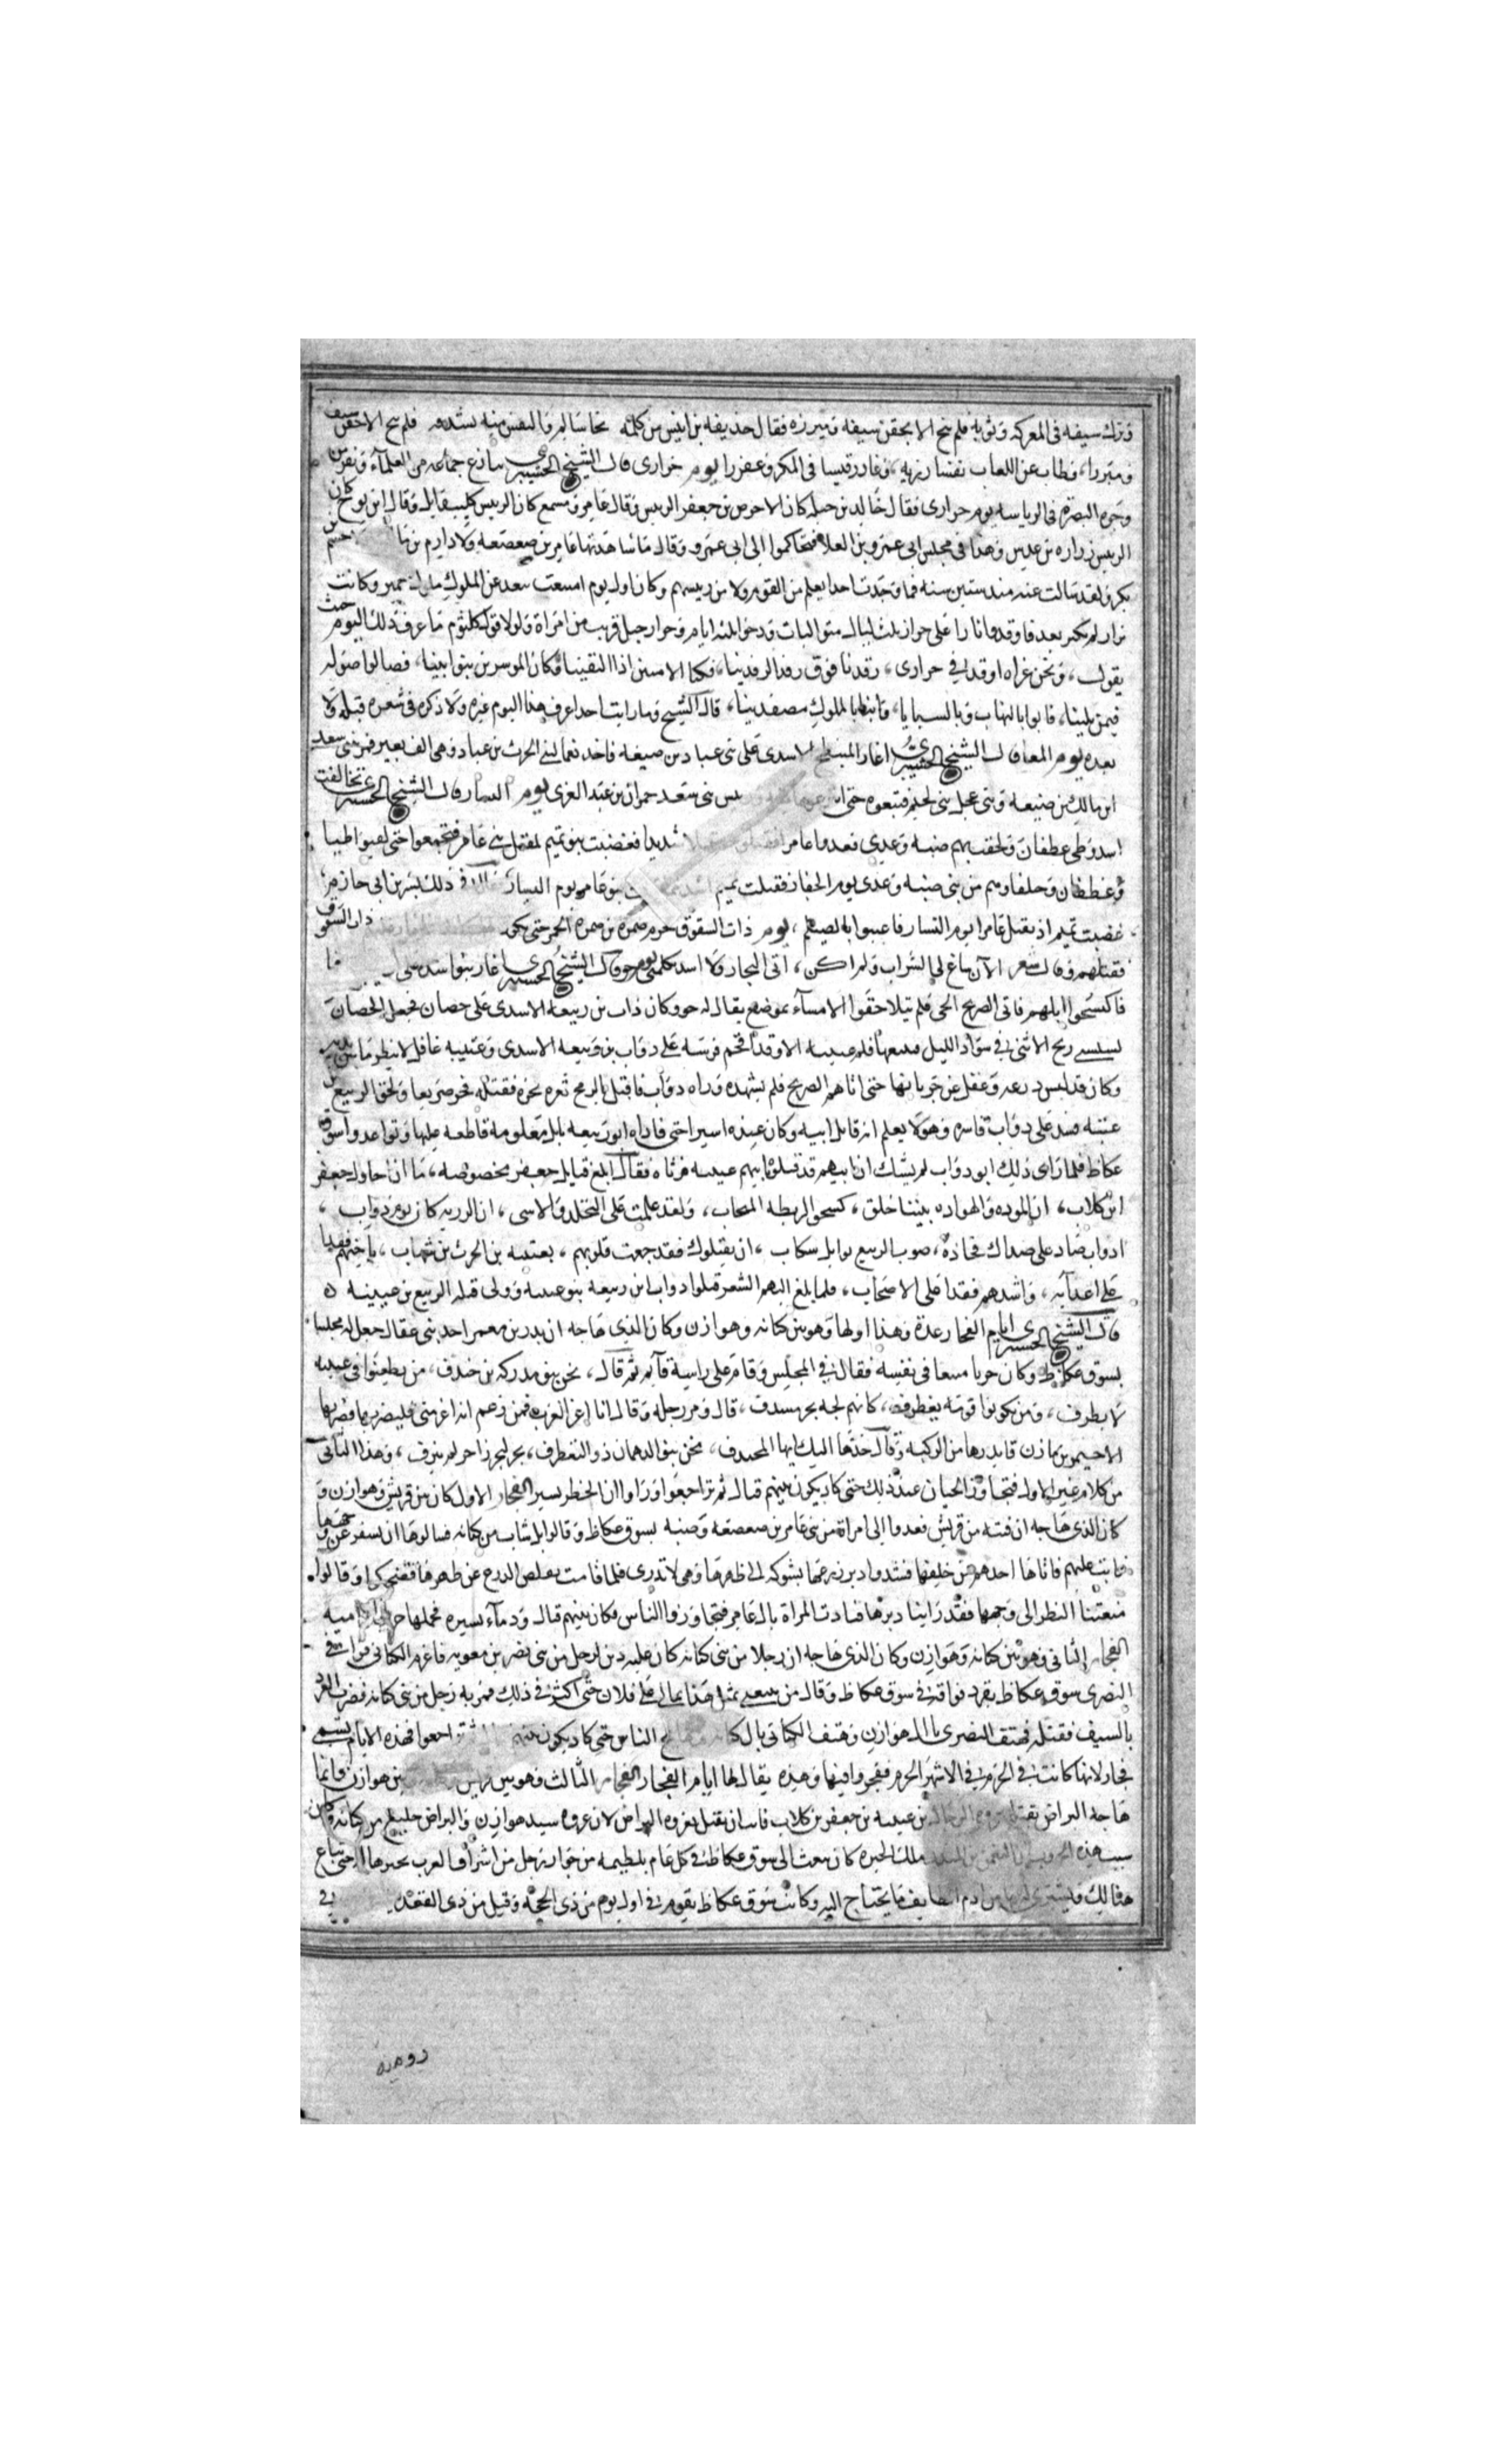 وترك سيفه في المعركه وثوبه فلم ينج الا بجفن سيفه ومئزره فقال حذيفه بن انيس من كلمه نجا سالم والنفس منه بشدقه فلم ينج الا جفن سيف
ومئزرا، وطاب عن اللعاب نفسا وربه، وغادر قيسا في المكر وعفزرا يوم خزازي قال الشيخ تنازع جماعه من العلمآء ونفر من
وجوه البصرة في الرياسه يوم خزازي فقال خالد بن جبله كان الاحوص بن جعفر الرييس وقال عامر ومسمع كان الرييس كليب وايل وقال ابن نوح كان
الرييس زراره بن عدس وهذا في مجلس ابي عمرو بن العلا فتحاكموا الى ابي عمرو وقال ما شاهدتها عامر بن صعصعه ولا دارم بن ما جشم بن
بكر ولقد سالت عنه منذ ستين سنه فما وجدت احدا يعلم من القوم ولا من رييسهم وكان اول يوم امتنعت معد عن الملوك ملوك حمير وكانت
نزار لم تكثر بعد فاوقدوا نارا على خزاز ثلث ليال متواليات ودخنوا ثلثه ايام وخزاز جبل قريب من امراة ولولا قول كلثوم ما عرف ذلك اليوم حيث
يقول، ونحن غداه اوقد في خزازي، رفدنا فوق رفد الرفدينا، فكنا الايمنين اذا التقينا وكان الايسرين بنو ابينا، فصالوا صوله
فيمن يلينا، فابوا بالنهاب وبالسبايا، وابنا بالملوك مصفدينا، قال الشيخ وما رايت احدا عرف هذا اليوم غيره ولا ذكره في شعره قبله ولا
بعده يوم المعا قال الشيخ اغار المنبطح الاسدي على بني عباد بن ضبيعه فاخذ نعما لبني الحرث بن عباد وهي الف بعير فمر بني سعد
ابن مالك بن ضبيعه وبني عجل بني لجيم فتبعوه حتى رييس بني سعد حمران بن عبد العزى يوم النسار قال الشيخ تحالفت
اسد وطي غطفان ولحقت بهم ضبه وعدي فغدوا عامرا شديدا فغضبت بنو تميم لمقتل بني عامر فتجمعوا حتى لقيوا طيبا
وغطفان وحلفاوهم من بني ضبه وعدي يوم الجفار فقتلت تميم بنو عامر يوم النسار ذلك بشر بن ابي حازم،
غضبت تميم ان يقتل عامرا يوم النسار فاعتبوا بالصيلم، يوم ذات الشقوق حرم ضمرة بن ضمرة الخمر حتى يكون ذات الشقوق
فقتلهم وقال شعر الآن ساغ لي الشراب ولم اكن، آتي التجار ولا اسد تكلمي يوم خو قال الشيخ اغار بنو اسد على
فاكتسحوا ابلهم فاتى الصريخ الحي فلم يتلاحقوا الا مسآء بموضع يقال له خو وكان ذاب بن ربيعه الاسدي على حصان فجعل الحصان
ريح الانثى في سواد الليل الا وقد اقحم فرسه على دواب بن ربيعه الاسدي وعتيبه غافل لا ينظر ما بين يديه
وكان قد لبس درعه وغفل عن جربانها حتى اتاهم الصريخ فلم يشهده وراه دواب فاقبل بالرمح ثغره نحره فقتله فخر صريعا ولحق الربيع بن
عتيبه فشد على دواب فاسره وهو لا يعلم انه قاتل ابيه وكان عنده اسيرا حتى فاداه ابو ربيعه بابل معلومه قاطعه عليها وتواعدوا سوق
عكاظ فلما راى ذلك ابو دواب لم يشك ان ابنهم قد قتلوه بابيهم عتيبه فرثاه فقال ابلغ قبايل جعفر مخصوصه، ما ان احاول جعفر
ابن كلاب، ان المودة والهواده بيننا خلق، كسحق الريطه المنجاب، ولقد علمت على التجلد والاسى، ان الرزيه كان يوم دواب،
ادواب صاد على صداك فجاده، صوب الربيع بوابل سكاب، ان يقتلوك فقد ثللت قلوبهم، بعتيبه بن الحرث بن شهاب، باحبهم فقدا
على اعدآيه، واشدهم فقدا على الاصحاب، فلما بلغ اليهم الشعر قتلوا دواب ابن ربيعه بنو عتيبه وولى قتله الربيع بن عتيبه ه
قال الشيخ ايام الفجار عدة وهذا اولها وهو بين كنانه وهوازن وكان الذي هاجه ان بدر بن معمر احد بني عقال جعل له مجلسا
بسوق عكاظ وكان حربا منيعا في نفسه فقال في المجلس وقام على راسه قآيم ثم قال، نحن بنو مدركه بن خندف، من يطعنوا في عينه
لا يطرف، ومن يكونوا قومه يغطرف، كانهم لجه بحر مسدف، قال ومد رجله وقال انا اعز العرب فمن زعم انه اعز مني فليضربها فضربها
الاحيمر بن مازن فاندرها من الركبه وقال خذها اليك ايها المخندف، نحن بنو الدهمان ذو التغطرف، بحر لبحر زاخر لم ينزف، وهذا الثاني
من كلام غير الاول فتجاوز الحيان عند ذلك حتى كاد يكون بينهم قتال ثم تراجعوا وراوا ان الخطر يسير الفجار الاول كان بين قريش وهوازن و
كان الذي هاجه ان فتيه من قريش قعدوا الى امراة من بني عامر بن صعصعه وضيئه بسوق عكاظ وقالوا بل شاب من كنانه فسالوها ان تسفر عن وجهها
فابت عليهم فاتاها احدهم من خلفها فشد دبر درعها بشوكه الى ظهرها وهي لا تدري فلما قامت تقلص الدرع عن ظهرها فضحكوا وقالوا
منعتنا النظر الى وجهها فقد راينا دبرها فنادت المراة يال عامر فتجاوزوا الناس وكان بينهم قتال ودمآء يسيره فحملها حرب ابن اميه
الفجار الثاني وهو بين كنانه وهوازن وكان الذي هاجه ان رجلا من بني كنانه كان عليه دين لرجل من بني نصر بن معويه فاعدم الكناني فوافى
النصري سوق عكاظ بقرد فواقفه في سوق عكاظ وقال من يبيعني مثل هذا بمالي على فلان حتى اكثر في ذلك فمر به رجل من بني كنانه فضرب القرد
بالسيف فقتله فهتف النصري يا ال هوازن وهتف الكناني يال كنانه الناس حتى كاد يكون بينهم ثم تراجعوا فهذه الايام تسمى
فجار لانها كانت في الحرم في الاشهر الحرم ففجروا فيها وهذه يقال لها ايام الفجار الفجار الثالث وهو بين قريش وبين هوازن وانما
هاجه البراض بقتله عروه الرحال بن عتيبه بن جعفر بن كلاب فابت ان يقتل بعروه البراض لان عروه سيد هوازن والبراض خليع من كنانه وكان
سبب هذه الحرب ان النعمن بن المنذر ملك الحيره كان يبعث الى سوق عكاظ في كل عام بلطيمه من جوار رجل من اشراف العرب يجيرها حتى تباع
هنالك ويشترى له من ادم الطايف ما يحتاج اليه وكانت سوق عكاظ يقوم في اول يوم من ذي الحجه وقيل من ذي القعده في